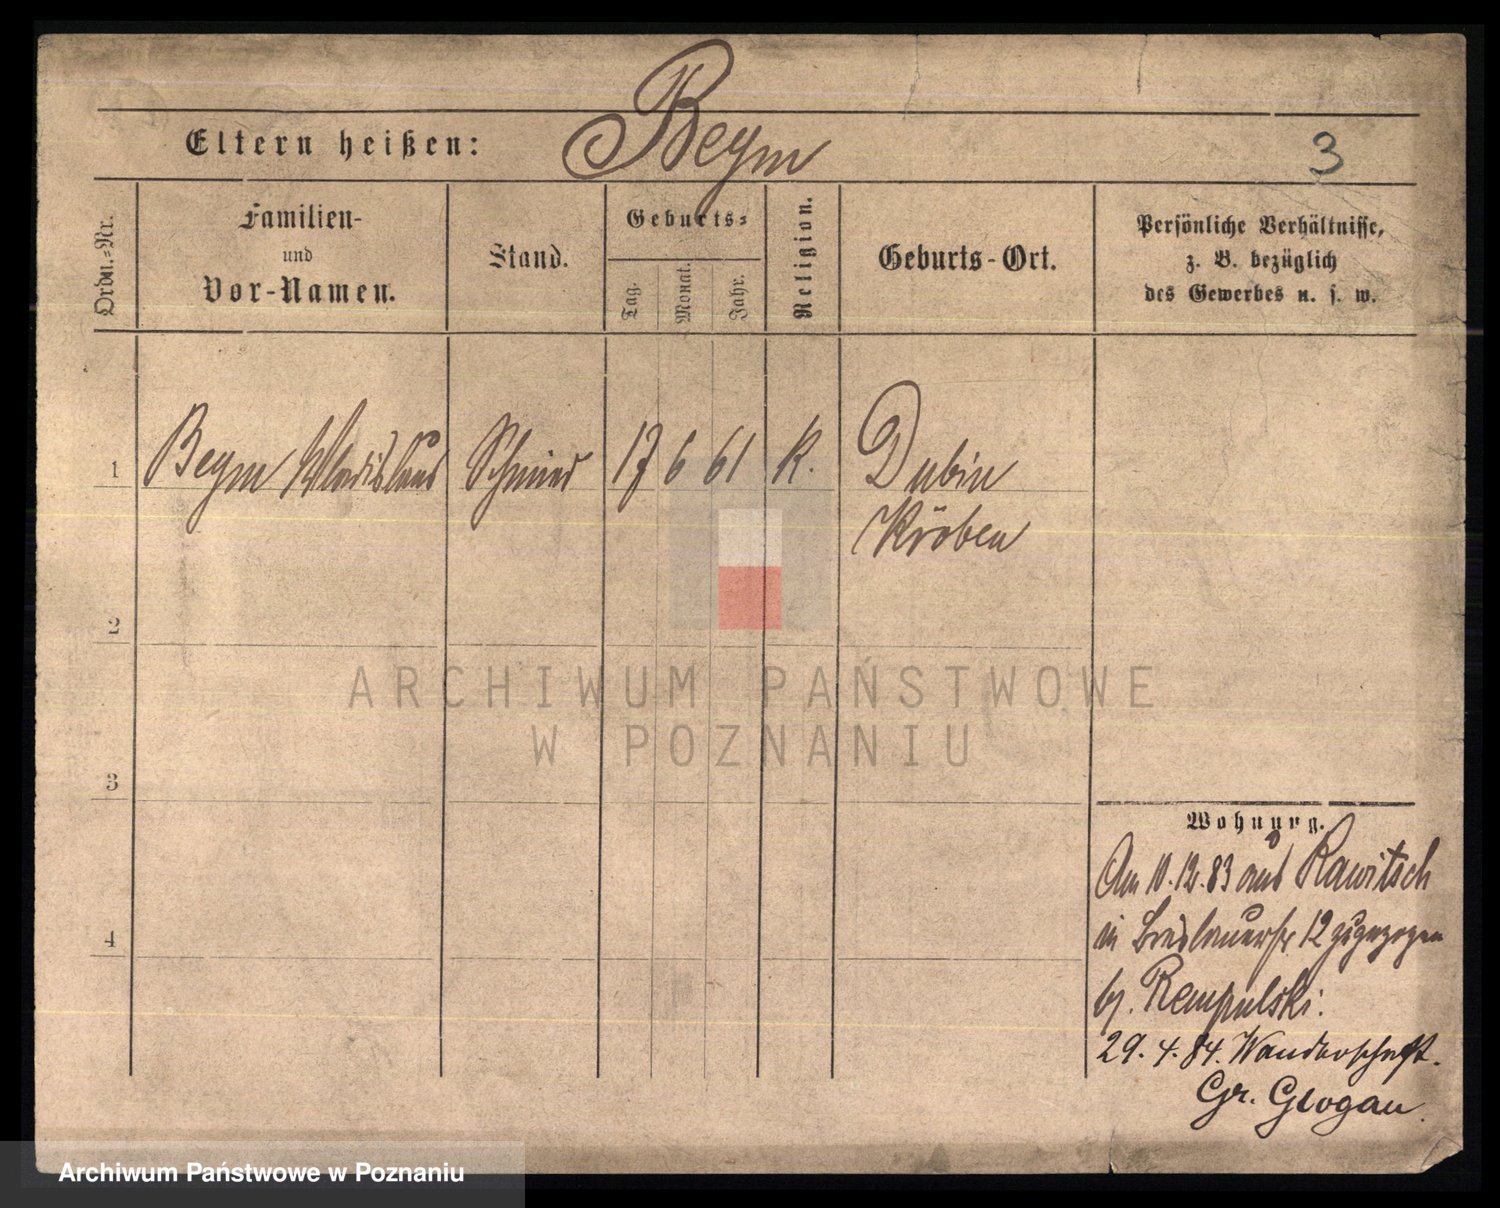 Eltern heißen: Beym 3
Ordn.-Nr.
Familien-
und
Vor-Namen.
Stand.
Geburts-
Tag.
Monat.
Jahr.
Religion.
Geburts-Ort.
Persönliche Verhältnisse,
z. B. bezüglich
des Gewerbes u. s. w.
1 Beym Wladislaus Schmied 17 6 61 K. Dubin
Kröben
2
3
4
Wohnung.
Am 10.12.83 aus Rawitsch
in Breslauerstr. 12 zugezogen
bj. Rempulski.
29.4.84. Wanderschaft.
Gr. Glogau.
ARCHIWUM PAŃSTWOWE
W POZNANIU
Archiwum Państwowe w Poznaniu